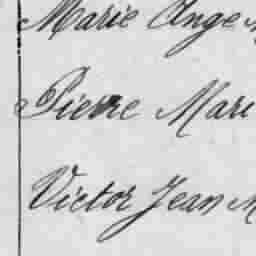 Marie Ange
Pierre Mari
Victor Jean